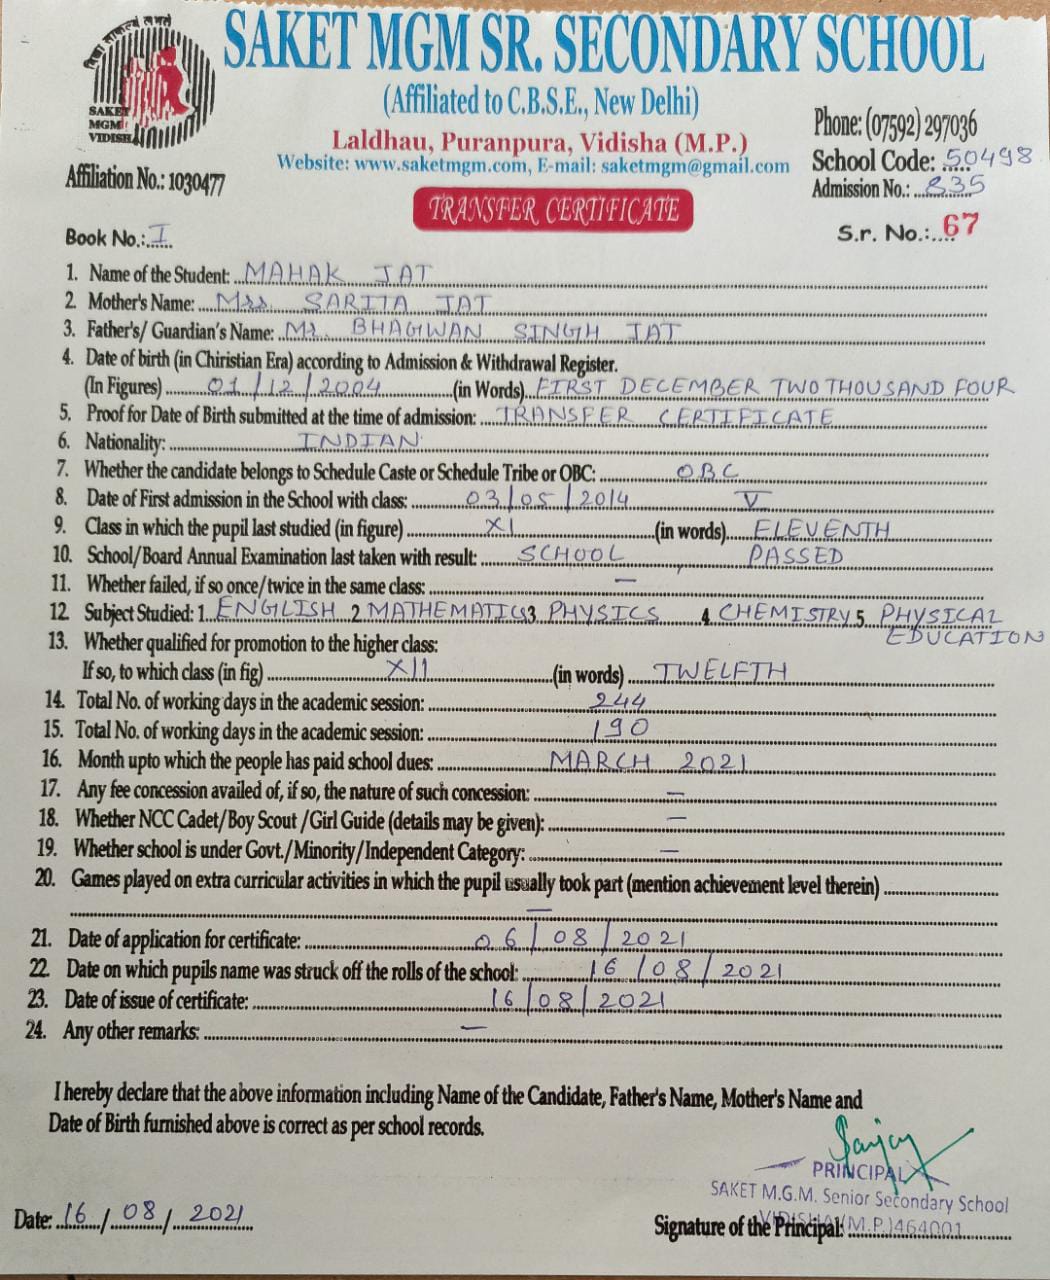 SAKET MGM SR. SECONDARY SCHOOL
(Affiliated to C.B.S.E., New Delhi)
Laldhau, Puranpura, Vidisha (M.P.)
Website: www.saketmgm.com, E-mail: saketmgm@gmail.com
SAKET
MGM
VIDISHA
Phone: (07592) 297036
School Code: 50498
Affiliation No.: 1030477
Admission No.: 835
TRANSFER CERTIFICATE
Book No.: I
S.r. No.: 67
1. Name of the Student: MAHAK JAT
2. Mother's Name: Mrs. SARITA JAT
3. Father's/ Guardian's Name: Mr. BHAGWAN SINGH JAT
4. Date of birth (in Chiristian Era) according to Admission & Withdrawal Register.
(In Figures) 01/12/2004 (in Words) FIRST DECEMBER TWO THOUSAND FOUR
5. Proof for Date of Birth submitted at the time of admission: TRANSFER CERTIFICATE
6. Nationality: INDIAN
7. Whether the candidate belongs to Schedule Caste or Schedule Tribe or OBC: OBC
8. Date of First admission in the School with class: 03/05/2014 V
9. Class in which the pupil last studied (in figure) XI (in words) ELEVENTH
10. School/Board Annual Examination last taken with result: SCHOOL, PASSED
11. Whether failed, if so once/twice in the same class: —
12. Subject Studied: 1. ENGLISH 2. MATHEMATICS 3. PHYSICS 4. CHEMISTRY 5. PHYSICAL
EDUCATION
13. Whether qualified for promotion to the higher class:
If so, to which class (in fig) XII (in words) TWELFTH
14. Total No. of working days in the academic session: 244
15. Total No. of working days in the academic session: 190
16. Month upto which the people has paid school dues: MARCH 2021
17. Any fee concession availed of, if so, the nature of such concession: —
18. Whether NCC Cadet/Boy Scout /Girl Guide (details may be given): —
19. Whether school is under Govt./Minority/Independent Category: —
20. Games played on extra curricular activities in which the pupil usually took part (mention achievement level therein)
—
21. Date of application for certificate: 06/08/2021
22. Date on which pupils name was struck off the rolls of the school: 16/08/2021
23. Date of issue of certificate: 16/08/2021
24. Any other remarks: —
I hereby declare that the above information including Name of the Candidate, Father's Name, Mother's Name and
Date of Birth furnished above is correct as per school records.
Sanjay
PRINCIPAL
SAKET M.G.M. Senior Secondary School
VIDISHA (M.P.) 464001
Date: 16/08/2021
Signature of the Principal: